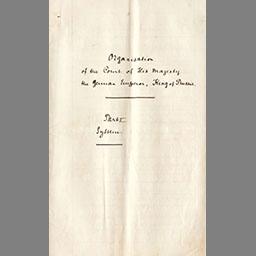 Organisation
of the Court of His Majesty
the German Emperor, King of Prussia.
Part I
System.